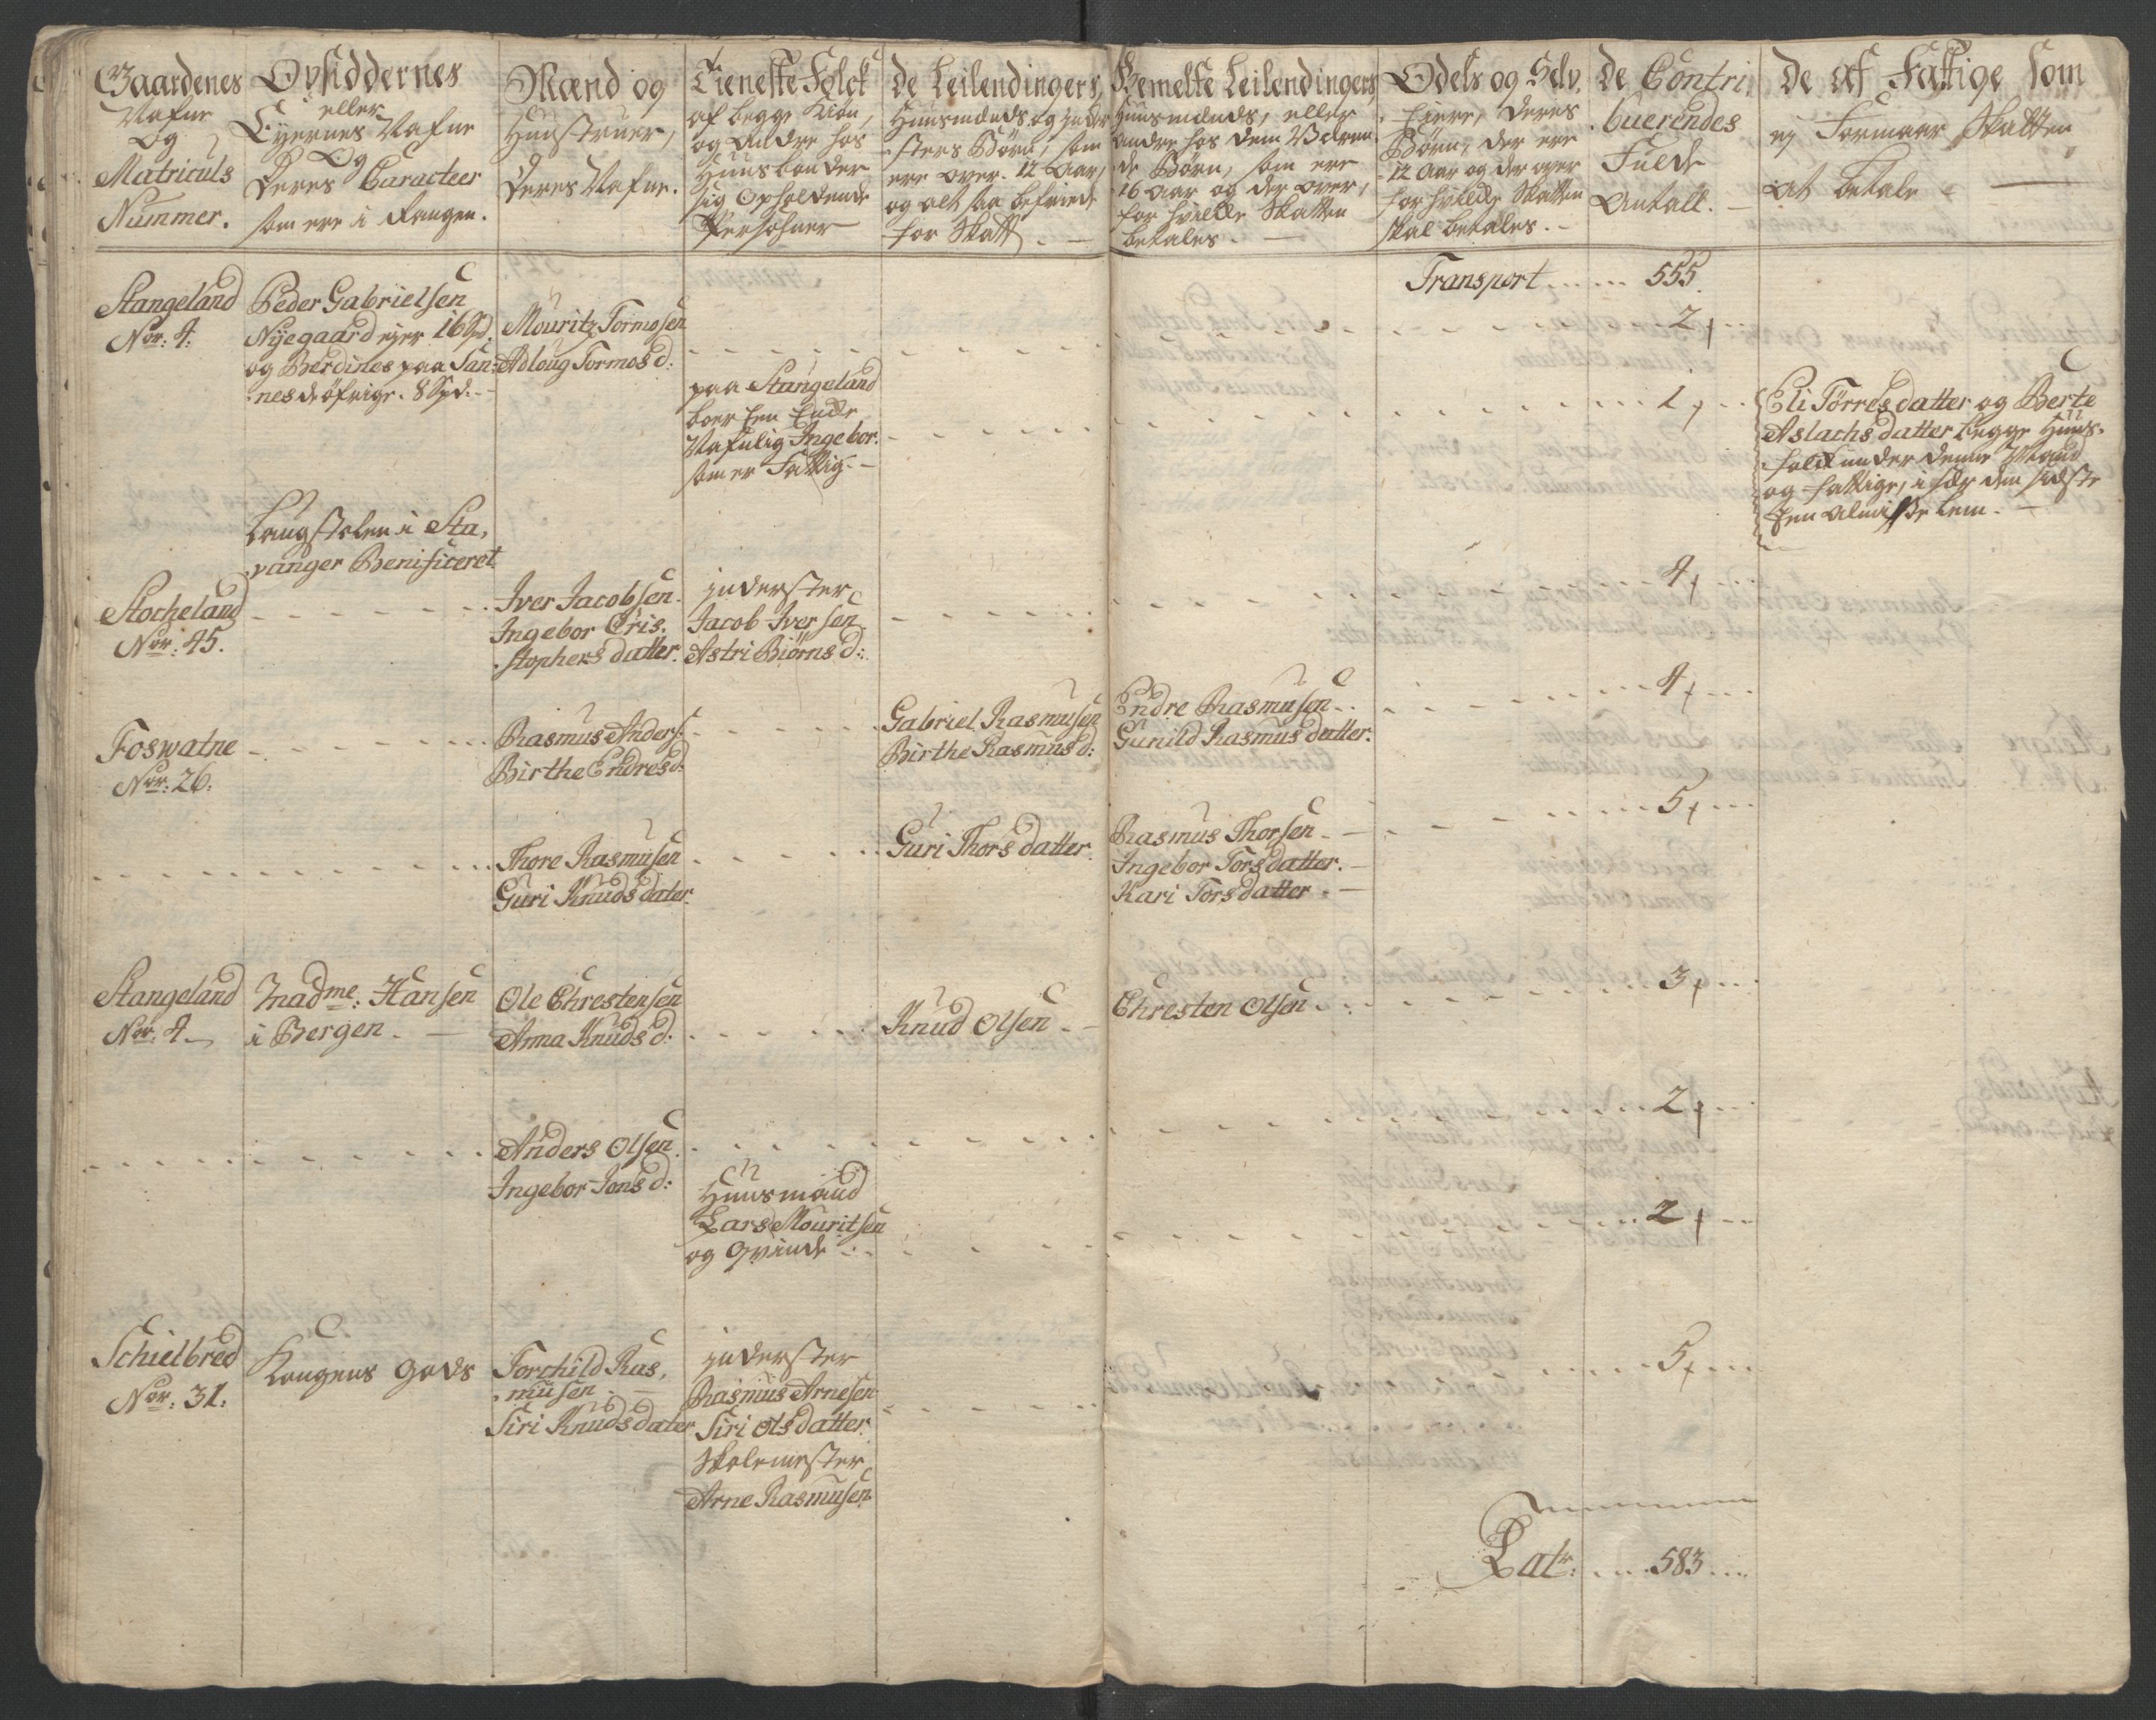 Gaardenes
Nafne
Og
Matriculs
Nummer.
Opsiddernes
eller
Eyernes Nafne
Og
Deres Caracteer
som ere i Rangen.
Mænd og
Hustruer,
Deres Nafne.
Tieneste Folck
af begge Kiön,
og Andre hos
Huusbonder
sig Opholdende
Persohner
De Leilendingers,
Huusmænds og Inder
sters Børn, som
ere over 12 Aar,
og alt saa befriede
for Skatt. -
Bemelte Leilendingers,
Huusmænds, eller
andre hos dem Værren
de Børn, som ere
16 Aar og der over,
for hvilcke Skatten
betales. -
Odels og Selv,
Eiere, Deres
Børn, der ere
12 Aar og der over
for hvilcke Skatten
skal betales. -
De Contri
buerendes
Fulde
Antall. -
De af Fattige som
ej Formaar Skatten
at betale -
Transport ..... 555.
Stangeland
Nor: 4.
Peder Gabrielsen
Nyegaard ejer 16 Spd.
og Berdines paa San:
nes de øfrige. 8 Spd: -
Mouritz Tormosen
Adloug Tormos d:
2,
paa Stangeland
boer En Encke
Nafnlig Ingebor.
som er Fattig. -
1,
Eli Törresdatter og Berte
Aslachs datter begge Huus-
folck under denne Mand
og fattige, i sær den sidste
Een Almisse Lem. -
Laugstolen i Sta,
vanger Benificeret
Stocheland
Nor: 45.
Iver Jacobsen.
Ingebor Cris.
stophers datter.
inderster
Jacob Iversen.
Astri Biörns d:
4,
Foswatne
Nor: 26.
Rasmus Anders:
Birthe Endresd:
Gabriel Rasmusen
Birthe Rasmus d:
Endre Rasmusen.
Gunild Rasmus datter.
4,
Thore Rasmusen
Guri Knuds dater.
Guri Thors datter.
Rasmus Thorsen. -
Ingebor Tors datter. -
Kari Tors datter. -
5,
Stangeland
Nor: 4.
Madme: Hansen
i Bergen. -
Ole Chrestensen
Anna Knuds d:
Knud Olsen. -
Chresten Olsen.
3,
Anders Olsen.
Ingebor Jons d:
2,
Huusmand
Lars Mouritsen
og Qvinde
2,
Schielbred
Nor: 31.
Kongens Gods
Torchild Ras,
musen. -
Siri Knuds dater
inderster
Rasmus Arnesen
Siri Ols datter.
Skolemester
Arne Rasmusen.
5,
Latr: .... 583 ...